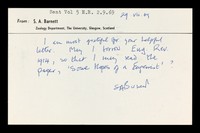 Sent Vol 5 E.R. 2.9.69
From: S. A. Barnett
Zoology Department, The University, Glasgow, Scotland
I am most grateful for your helpful
letter. May I borrow Eug. Rev.
1914, so that I may read the
paper, "Some Hopes of a Eugenist".